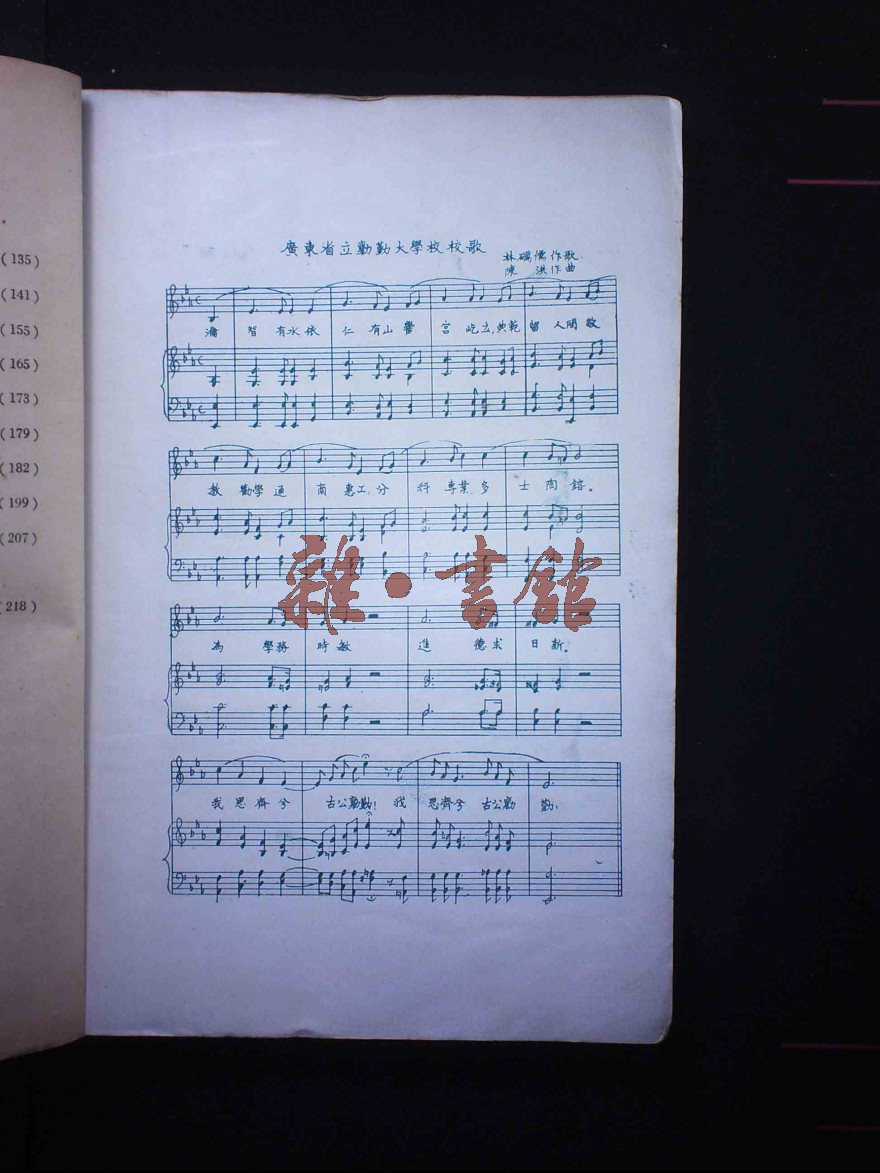 (135)
(141)
(155)
(165)
(173)
(179)
(182)
(199)
(207)
(218)
廣東省立勷勤大學校校歌
林礪儒作歌
陳 洪作曲
瀹 智 有水依 仁 有山黌 宮 屹立,典範 留 人間敬
教 勸學通 商 惠工,分 科 專業多 士 陶鎔。
為 學務 時敏 進 德求 日新。
我思齊兮 古公勷勤!我 思齊兮 古公勷 勤!
雜·書館